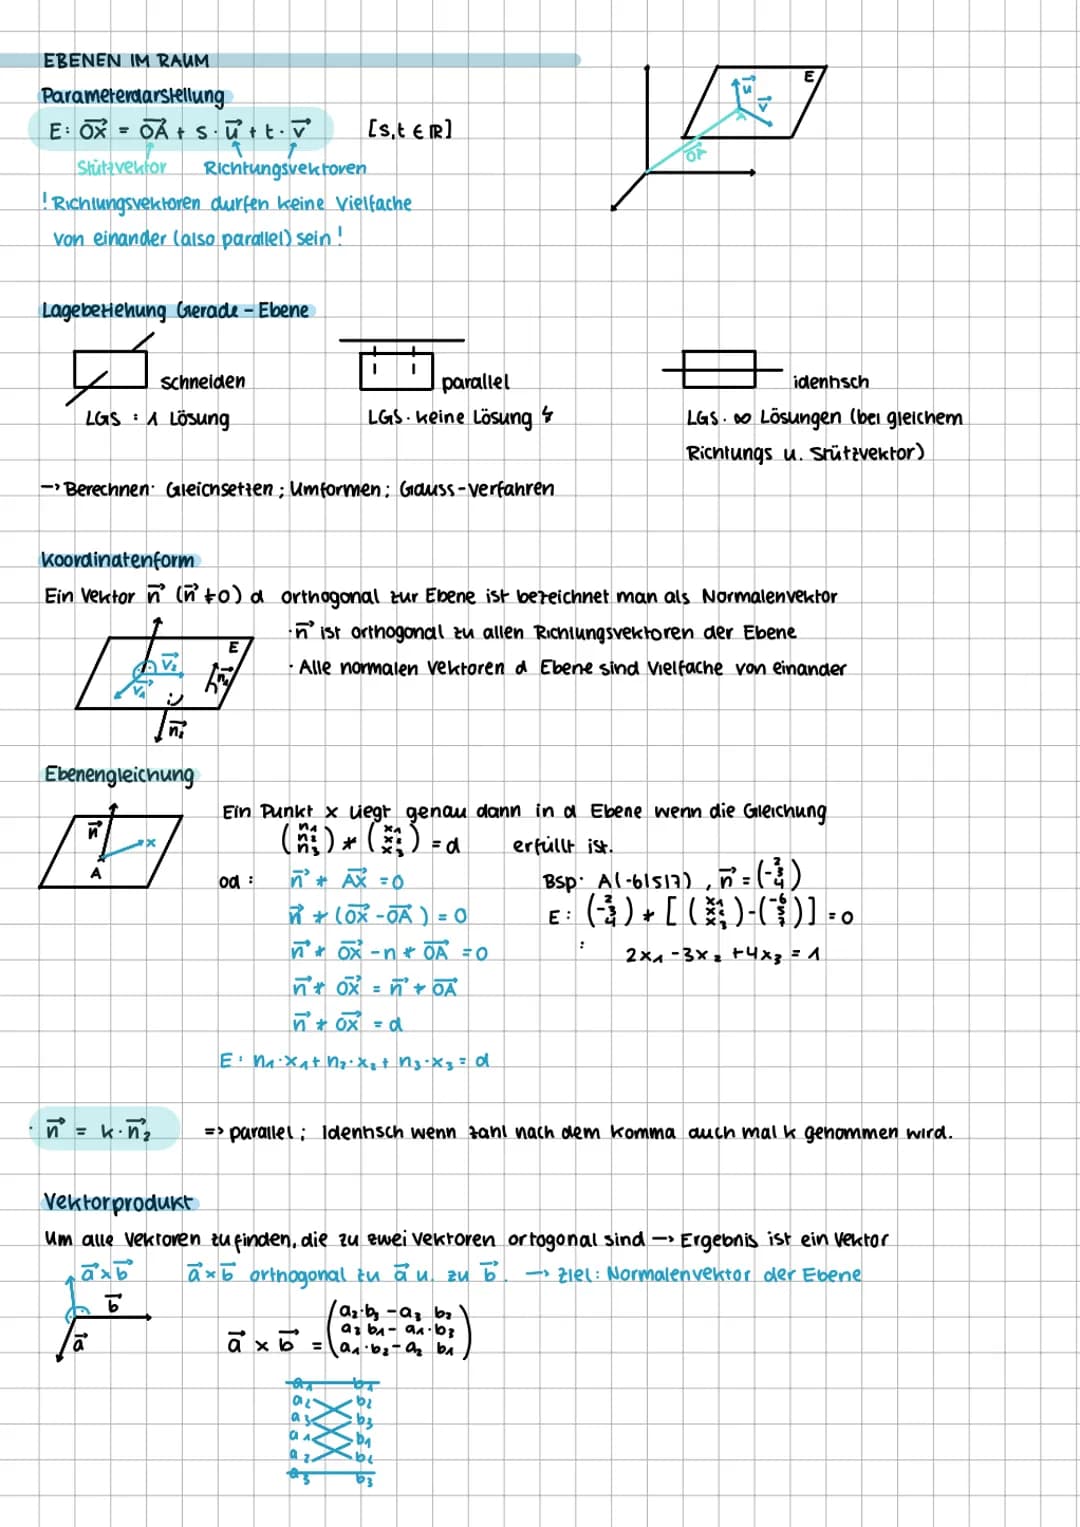 EBENEN IM RAUM
Parameterdarstellung
E: OX⃗ = OA⃗ + s · u⃗ + t · v⃗ [s,t ∈ ℝ]
Stützvektor Richtungsvektoren
! Richtungsvektoren durfen keine Vielfache
von einander (also parallel) sein !
E
u⃗
v⃗
A
OA⃗
Lagebeziehung Gerade - Ebene
schneiden
parallel
identisch
LGS : 1 Lösung
LGS. keine Lösung ↯
LGS. ∞ Lösungen (bei gleichem
Richtungs u. Stützvektor)
→ Berechnen: Gleichsetzen ; Umformen ; Gauss-verfahren
Koordinatenform
Ein Vektor n⃗ (n⃗ ≠ 0) d orthogonal zur Ebene ist bezeichnet man als Normalenvektor
· n⃗ ist orthogonal zu allen Richtungsvektoren der Ebene
· Alle normalen Vektoren d Ebene sind Vielfache von einander
E
v₂⃗
v₁⃗
Ebenengleichung
n⃗
x
A
Ein Punkt x liegt genau dann in d Ebene wenn die Gleichung
(n₁ n₂ n₃) * (x₁ x₂ x₃) = d erfüllt ist.
od : n⃗ * AX⃗ = 0
n⃗ * (OX⃗ - OA⃗) = 0
n⃗ * OX⃗ - n * OA⃗ = 0
n⃗ * OX⃗ = n⃗ * OA⃗
n⃗ * OX⃗ = d
E: n₁·x₁ + n₂·x₂ + n₃·x₃ = d
Bsp: A(-6|5|7) , n⃗ = (2 -3 4)
E: (2 -3 4) * [(x₁ x₂ x₃) - (-6 5 7)] = 0
: 2x₁ - 3x₂ + 4x₃ = 1
· n⃗ = k · n₂⃗ => parallel ; Identisch wenn zahl nach dem Komma auch mal k genommen wird.
Vektorprodukt
Um alle Vektoren zu finden, die zu zwei Vektoren ortogonal sind → Ergebnis ist ein Vektor
a⃗ x b⃗
b⃗
a⃗
a⃗ x b⃗ orthogonal zu a⃗ u. zu b⃗. → Ziel: Normalenvektor der Ebene
a⃗ x b⃗ = (a₂·b₃ - a₃ b₂
a₃ b₁ - a₁·b₃
a₁·b₂ - a₂ b₁)
a₁ b₁
a₂ b₂
a₃ b₃
a₁ b₁
a₂ b₂
a₃ b₃